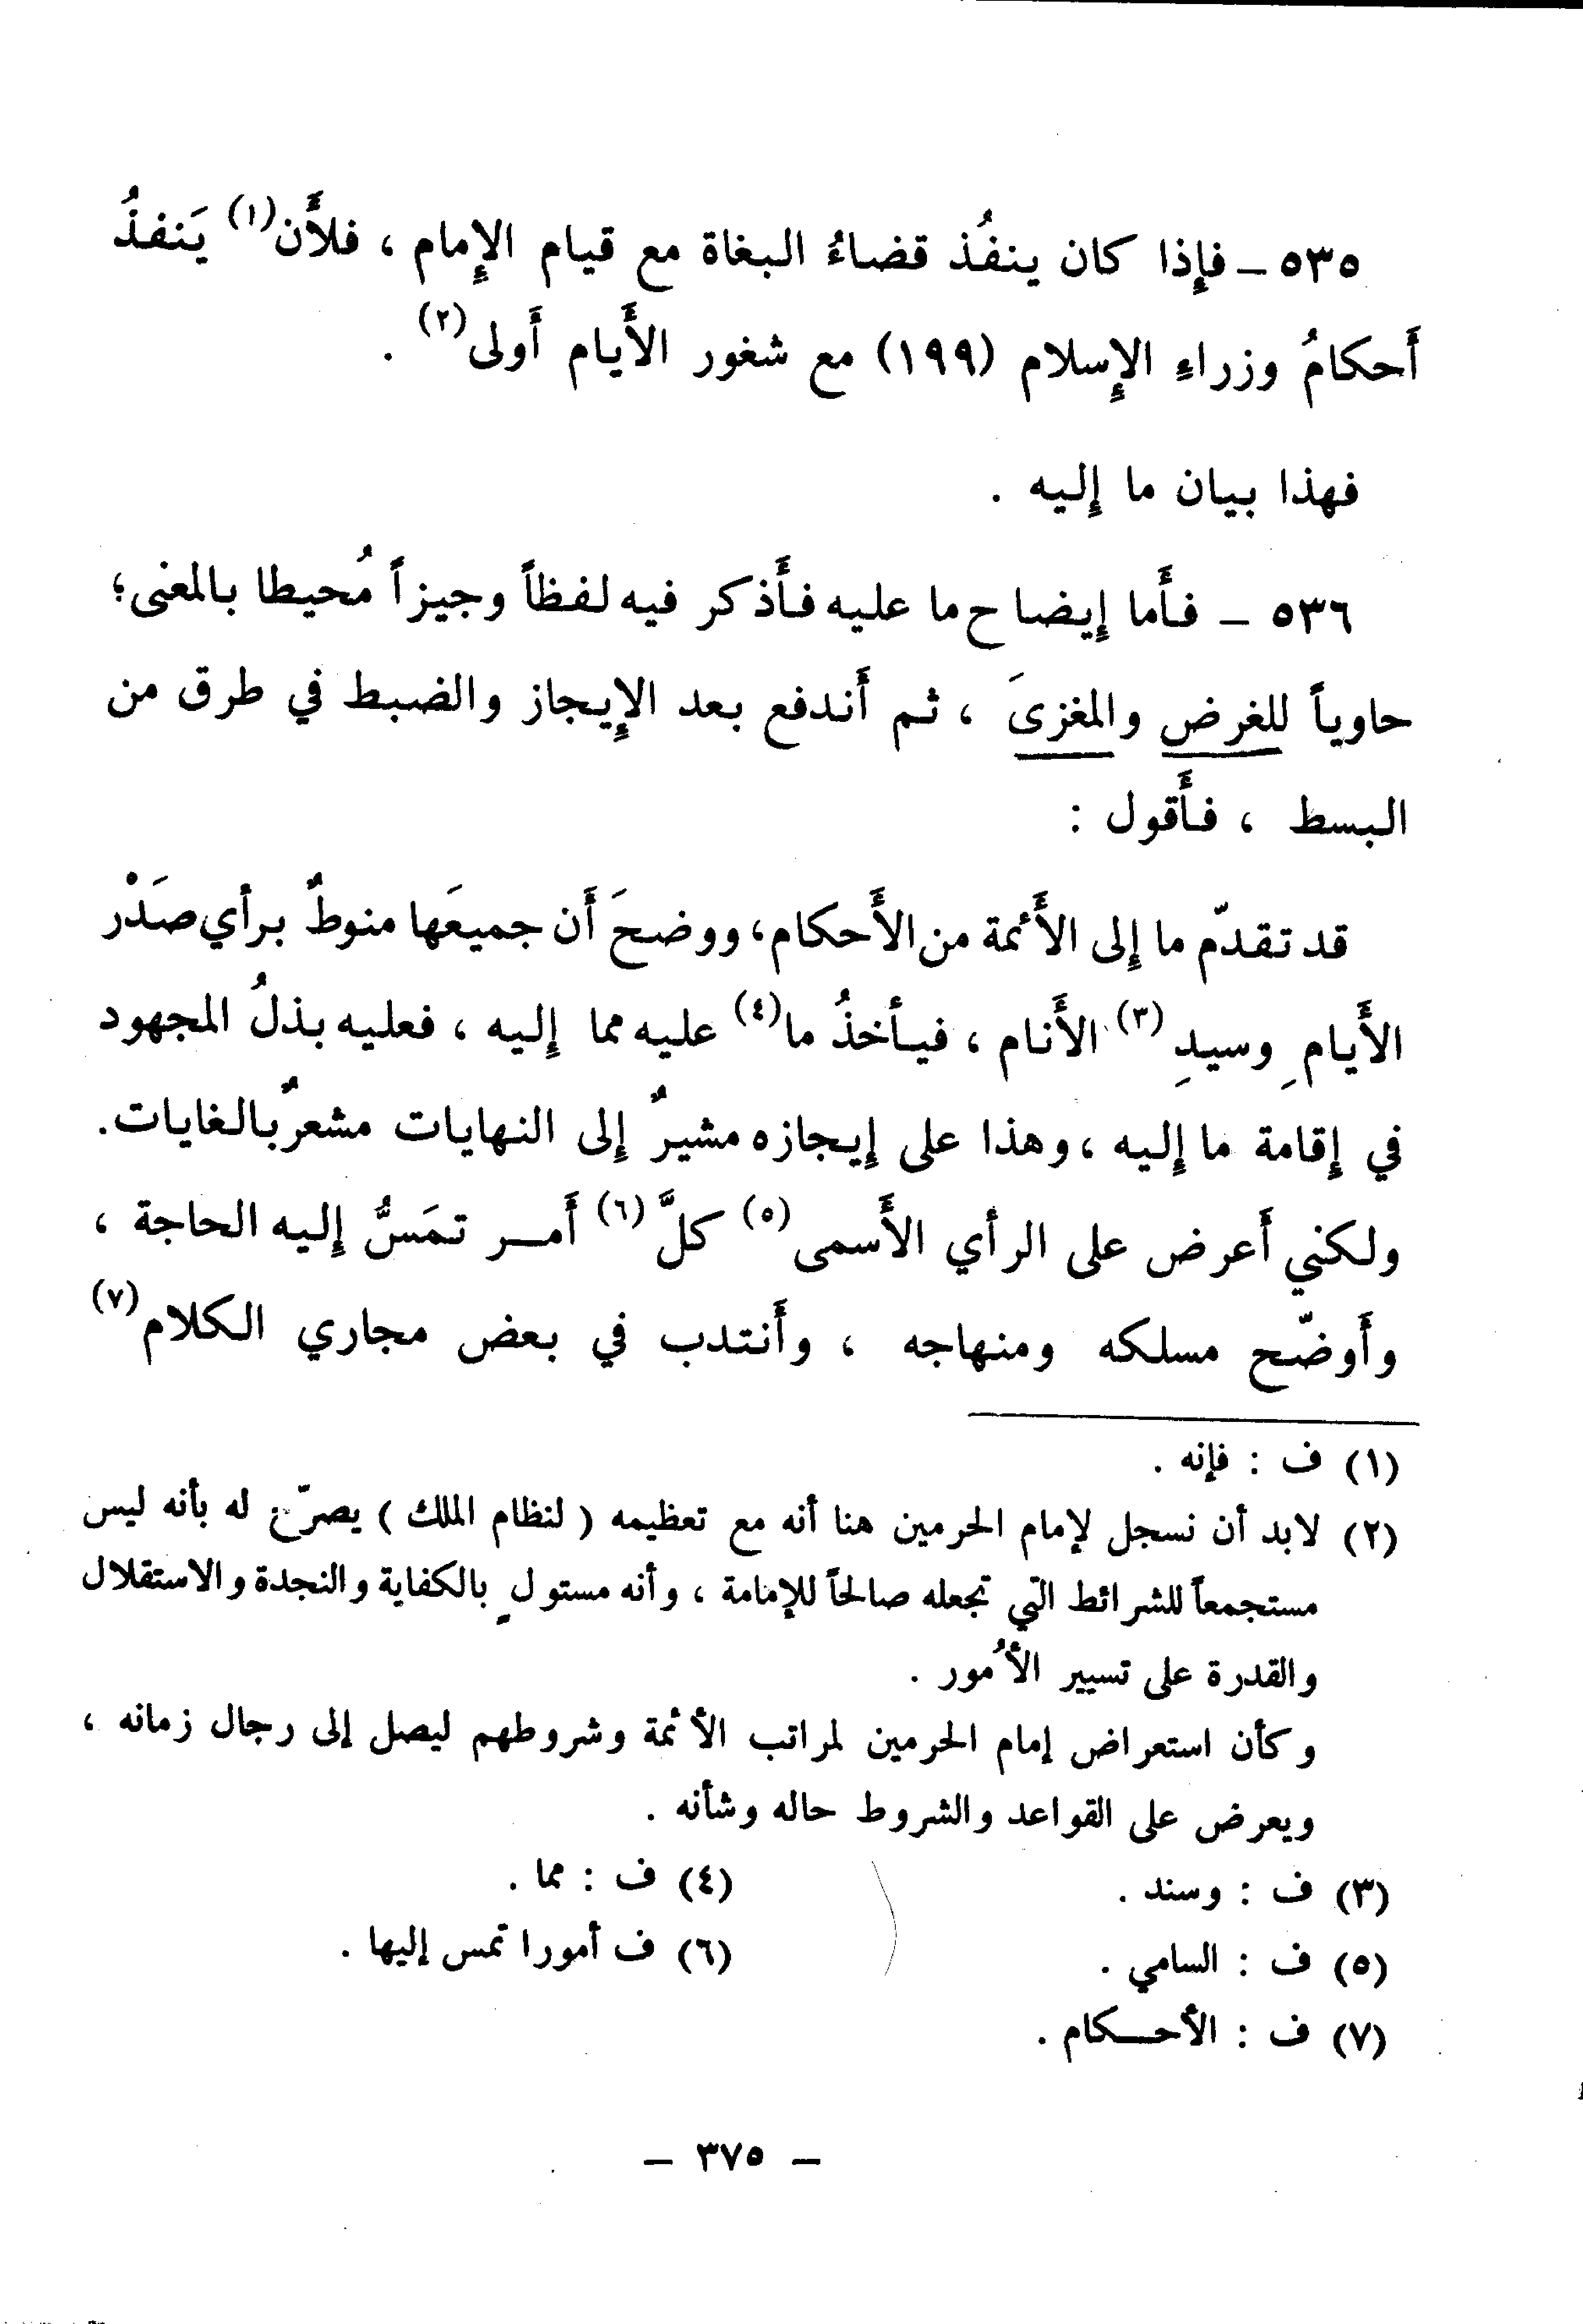 ٥٣٥ ـ فإِذا كان ينفُذ قضاءُ البغاة مع قيام الإِمام ، فلأَن(١) يَنفذُ
أَحكامُ وزراءِ الإِسلام (١٩٩) مع شغور الأَيام أَولى(٢) .
فهذا بيان ما إِليه .
٥٣٦ ـ فأَما إِيضاح ما عليه فأَذكر فيه لفظاً وجيزاً مُحيطا بالمعنى؛
حاوياً للغرض والمغزىَ ، ثم أَندفع بعد الإِيجاز والضبط في طرق من
البسط ، فأَقول :
قد تقدّم ما إِلى الأَئمة من الأَحكام، ووضحَ أَن جميعَها منوطٌ برأي صَدْر
الأَيامِ وسيدِ(٣) الأَنام ، فيأخذُ ما(٤) عليه مما إِليه ، فعليه بذلُ المجهود
في إِقامة ما إِليه ، وهذا على إِيجازه مشيرٌ إِلى النهايات مشعرٌ بالغايات.
ولكني أَعرض على الرأي الأَسمى(٥) كلَّ(٦) أَمــر تمَسُّ إِليه الحاجة ،
وأَوضّح مسلكه ومنهاجه ، وأَنتدب في بعض مجاري الكلام(٧)
(١) ف : فإنه .
(٢) لابد أن نسجل لإمام الحرمين هنا أنه مع تعظيمه ( لنظام الملك ) يصرّح له بأنه ليس
مستجمعاً للشرائط التي تجعله صالحاً للإمامة ، وأنه مستولٍ بالكفاية والنجدة والاستقلال
والقدرة على تسيير الأُمور .
وكأن استعراض إمام الحرمين لمراتب الأئمة وشروطهم ليصل إلى رجال زمانه ،
ويعرض على القواعد والشروط حاله وشأنه .
(٣) ف : وسند . (٤) ف : مما .
(٥) ف : السامي . (٦) ف أمورا تمس إليها .
(٧) ف : الأحــكام .
ـ ٣٧٥ ـ